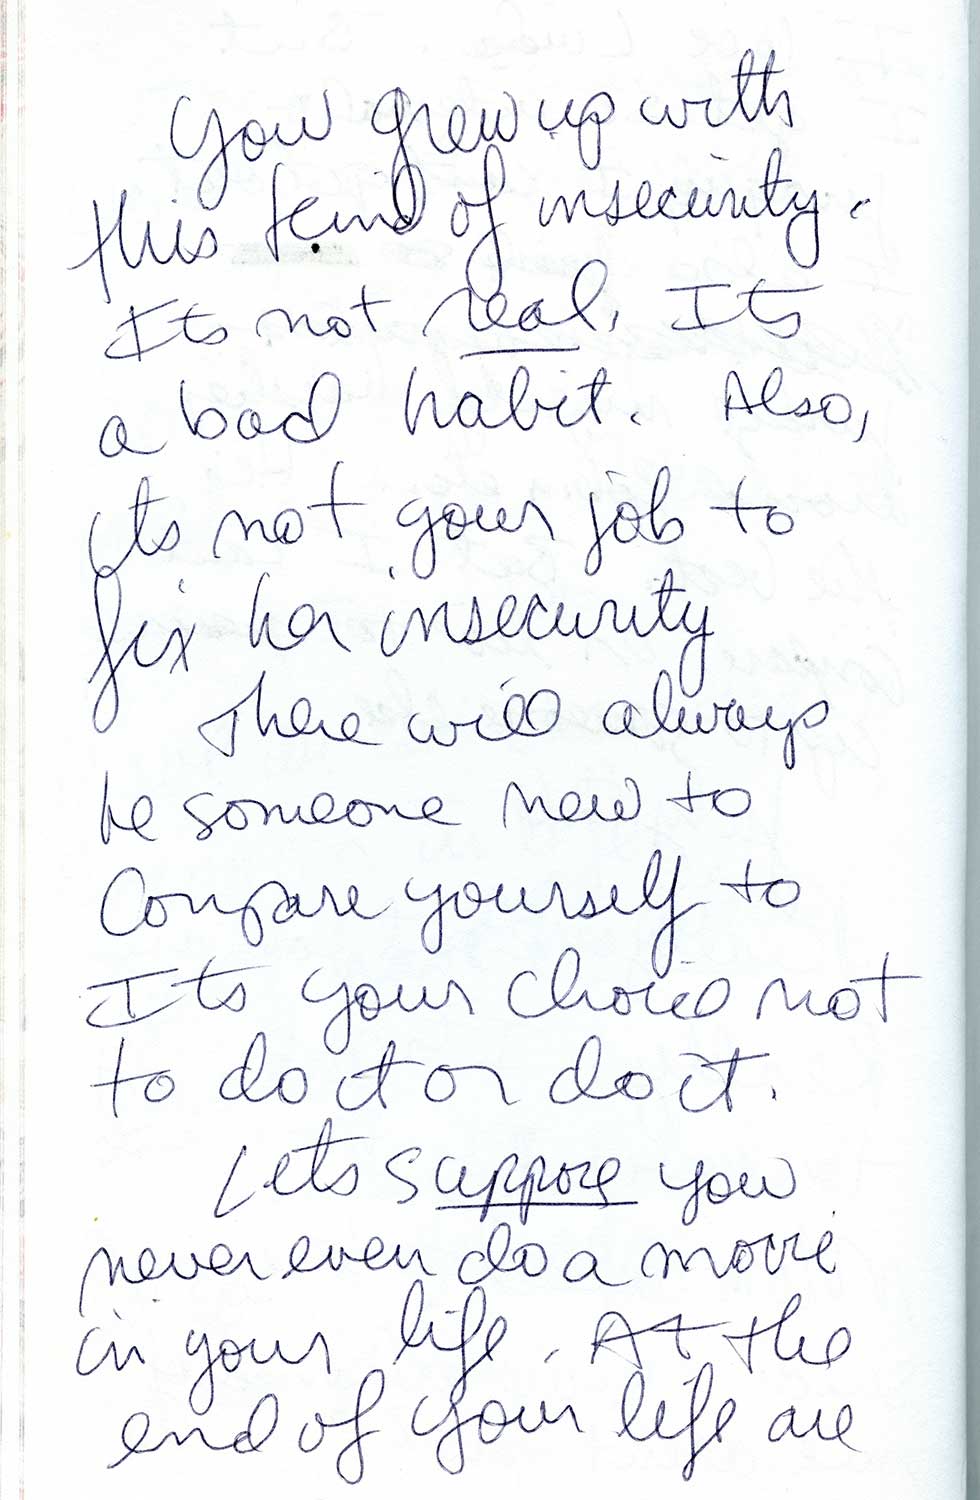 You grew up with
this kind of insecurity.
Its not real. Its
a bad habit. Also,
its not your job to
fix her insecurity
There will always
be someone new to
Compare yourself to
Its your choice not
to do it or do it.
Lets suppose you
never even do a movie
in your life. At the
end of your life are